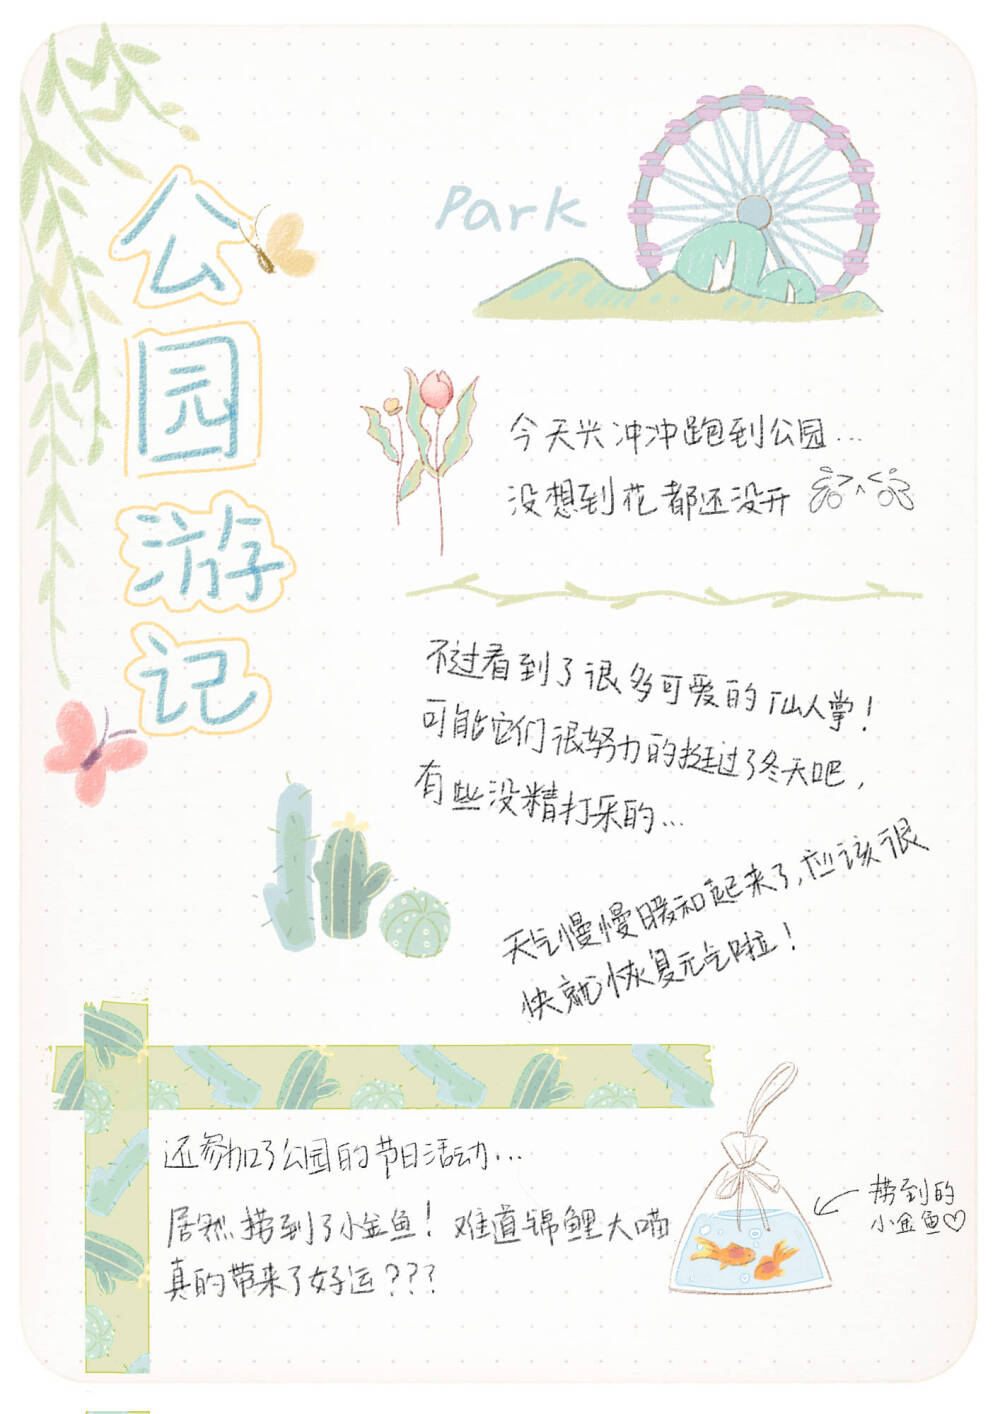 公园游记
Park
今天兴冲冲跑到公园...
没想到花都还没开
不过看到了很多可爱的仙人掌！
可能它们很努力的挺过了冬天吧，
有些没精打采的...
天气慢慢暖和起来了,应该很
快就恢复元气啦！
还参加了公园的节日活动...
居然捞到了小金鱼！难道锦鲤大喵
真的带来了好运？？？
捞到的
小金鱼♡